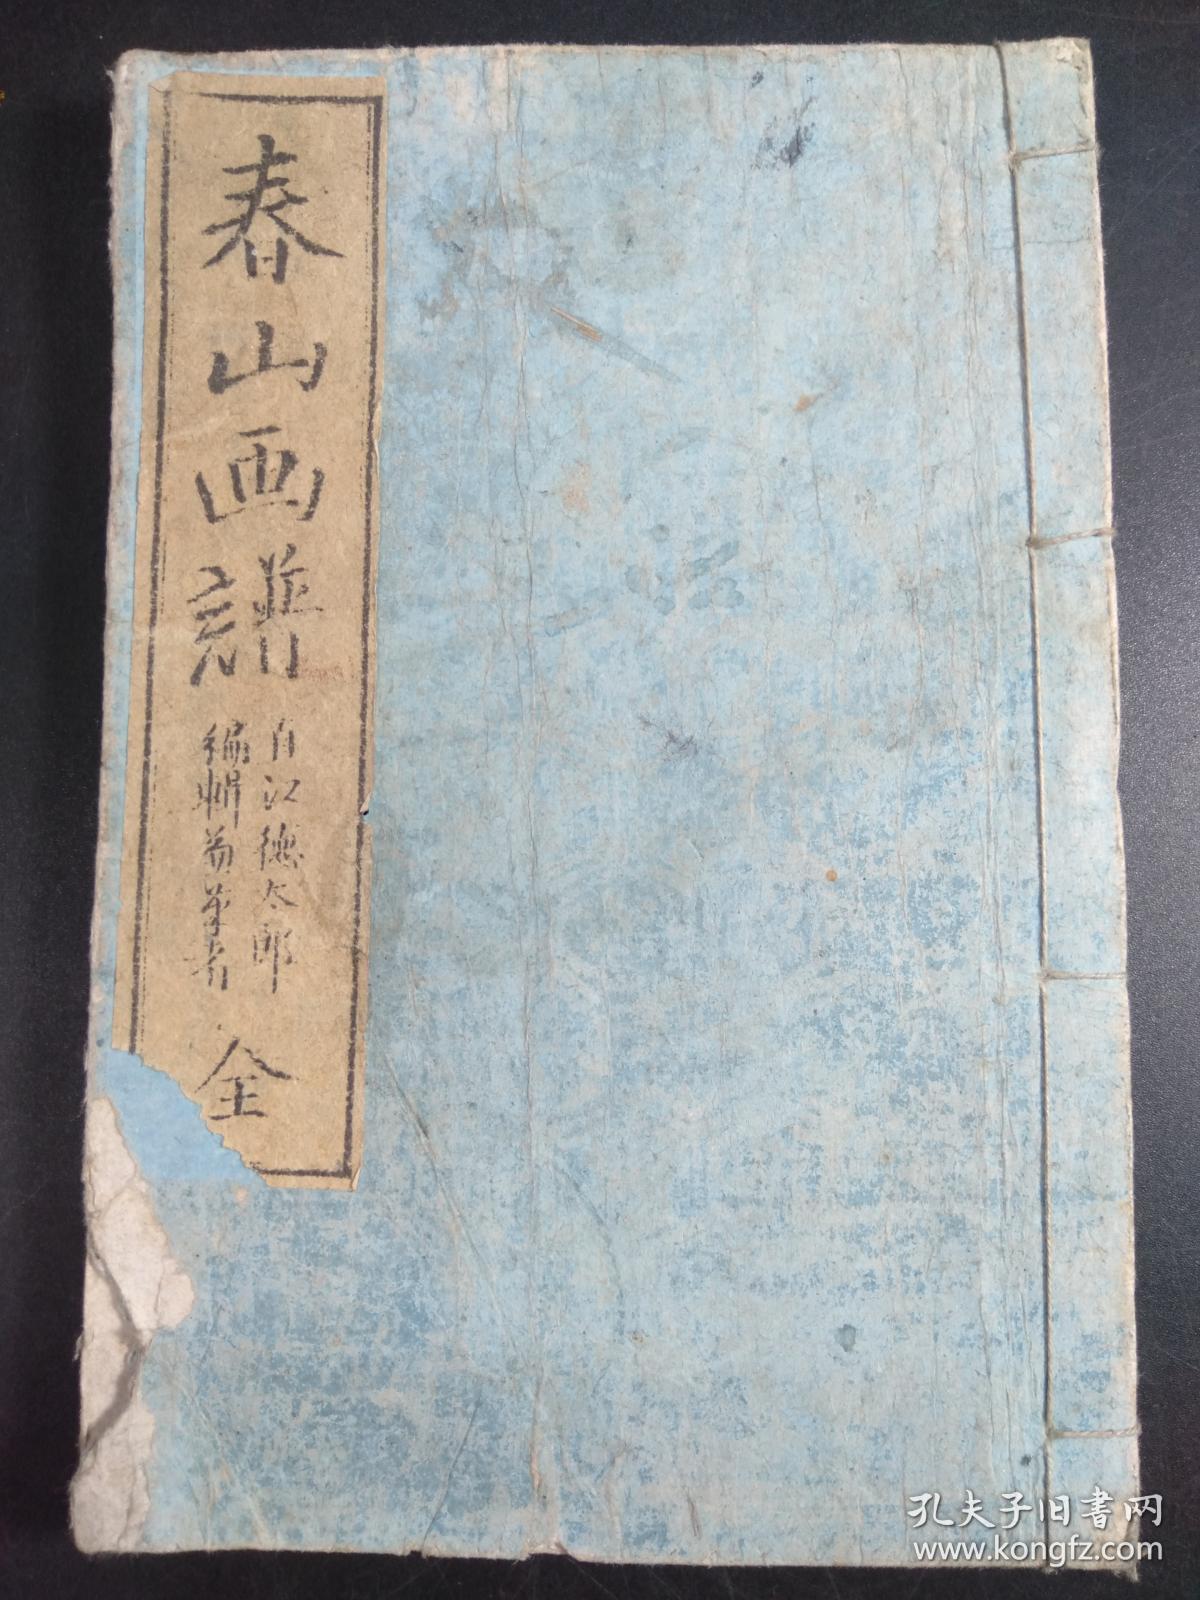 春山画譜
白江德太郎
編輯兼筆者
全
孔夫子旧书网
www.kongfz.com